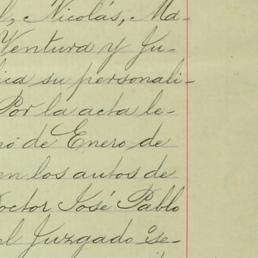 l, Nicolás, Ma-
Ventura y Ju-
ica su personali-
Por la acta le-
nó de Enero de
en los autos de
octor José Pablo
el Juzgado se-